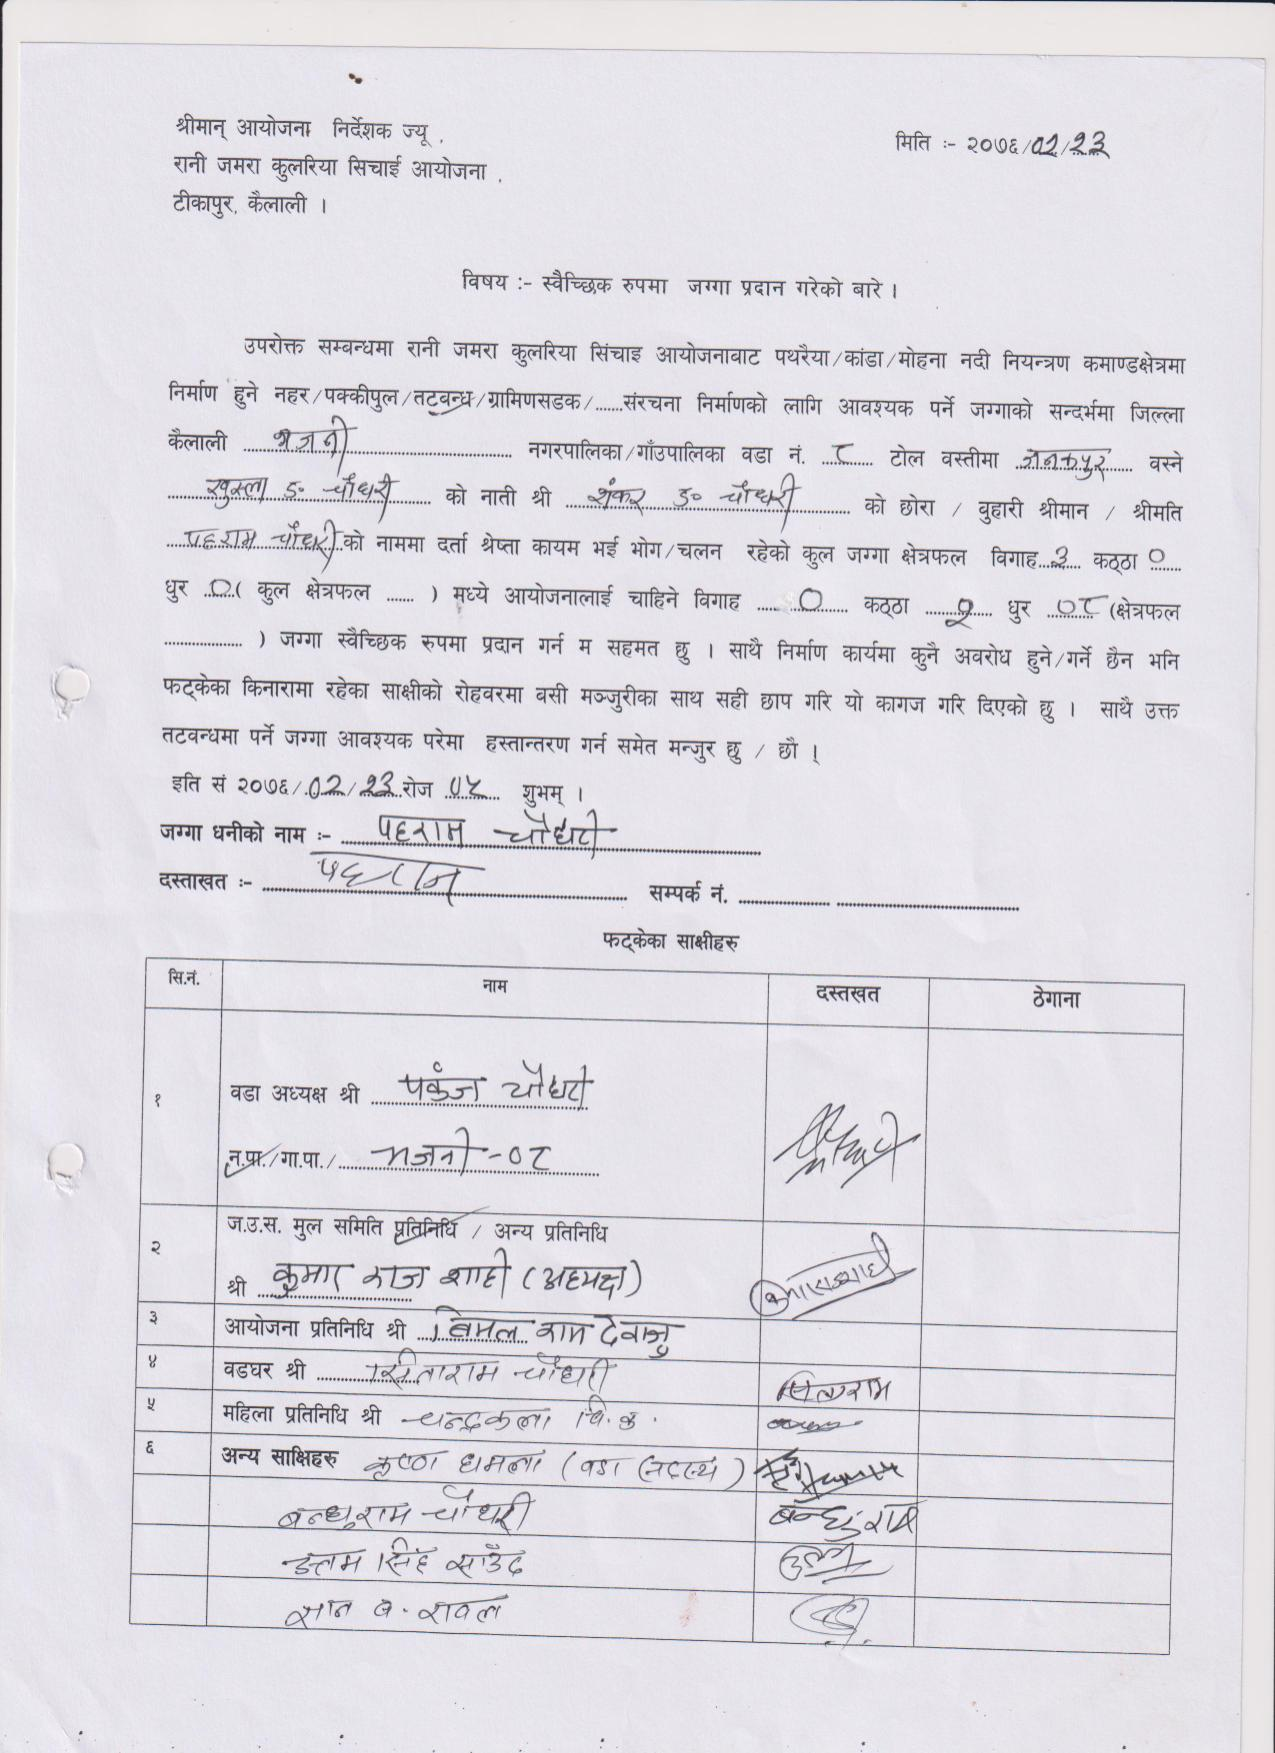 श्रीमान् आयोजना निर्देशक ज्यू ,
मिति :- २०७६/०२/२३
रानी जमरा कुलरिया सिचाई आयोजना ,
टीकापुर, कैलाली ।
विषय :- स्वैच्छिक रुपमा जग्गा प्रदान गरेको बारे ।
उपरोक्त सम्बन्धमा रानी जमरा कुलरिया सिंचाइ आयोजनावाट पथरैया/कांडा/मोहना नदी नियन्त्रण कमाण्डक्षेत्रमा
निर्माण हुने नहर/पक्कीपुल/तटवन्ध/ग्रामिणसडक/.......संरचना निर्माणको लागि आवश्यक पर्ने जग्गाको सन्दर्भमा जिल्ला
कैलाली भजनी नगरपालिका/गाँउपालिका वडा नं. ८ टोल वस्तीमा जनकपुर वस्ने
खुस्ला ड॰ चौधरी को नाती श्री शंकर ड॰ चौधरी को छोरा / वुहारी श्रीमान / श्रीमति
पहराम चौधरी को नाममा दर्ता श्रेष्ता कायम भई भोग/चलन रहेको कुल जग्गा क्षेत्रफल विगाह ३ कठ्ठा ०
धुर ० ( कुल क्षेत्रफल ...... ) मध्ये आयोजनालाई चाहिने विगाह ० कठ्ठा २ धुर ०८ (क्षेत्रफल
.................. ) जग्गा स्वैच्छिक रुपमा प्रदान गर्न म सहमत छु । साथै निर्माण कार्यमा कुनै अवरोध हुने/गर्ने छैन भनि
फट्केका किनारामा रहेका साक्षीको रोहवरमा वसी मञ्जुरीका साथ सही छाप गरि यो कागज गरि दिएको छु । साथै उक्त
तटवन्धमा पर्ने जग्गा आवश्यक परेमा हस्तान्तरण गर्न समेत मन्जुर छु / छौ ।
इति सं २०७६/०२/२३ रोज ०५ शुभम् ।
जग्गा धनीको नाम :- पहराम चौधरी
दस्ताखत :- पहराम सम्पर्क नं. ....................
फट्केका साक्षीहरु
सि.नं. नाम दस्तखत ठेगाना
१ वडा अध्यक्ष श्री पकंज चौधरी
न.पा./गा.पा./ भजनी -०८
२ ज.उ.स. मुल समिति प्रतिनिधि / अन्य प्रतिनिधि
श्री कुमार राज शाही (अध्यक्ष)
३ आयोजना प्रतिनिधि श्री विमल राम देवाजु
४ वडघर श्री सिताराम चौधरी सिताराम
५ महिला प्रतिनिधि श्री चन्द्रकला वि.क.
६ अन्य साक्षिहरु कृष्ण धमला (वडा सदस्य)
बन्धुराम चौधरी बन्धुराम
उत्तम सिंह साउँद
मान ब. रावल